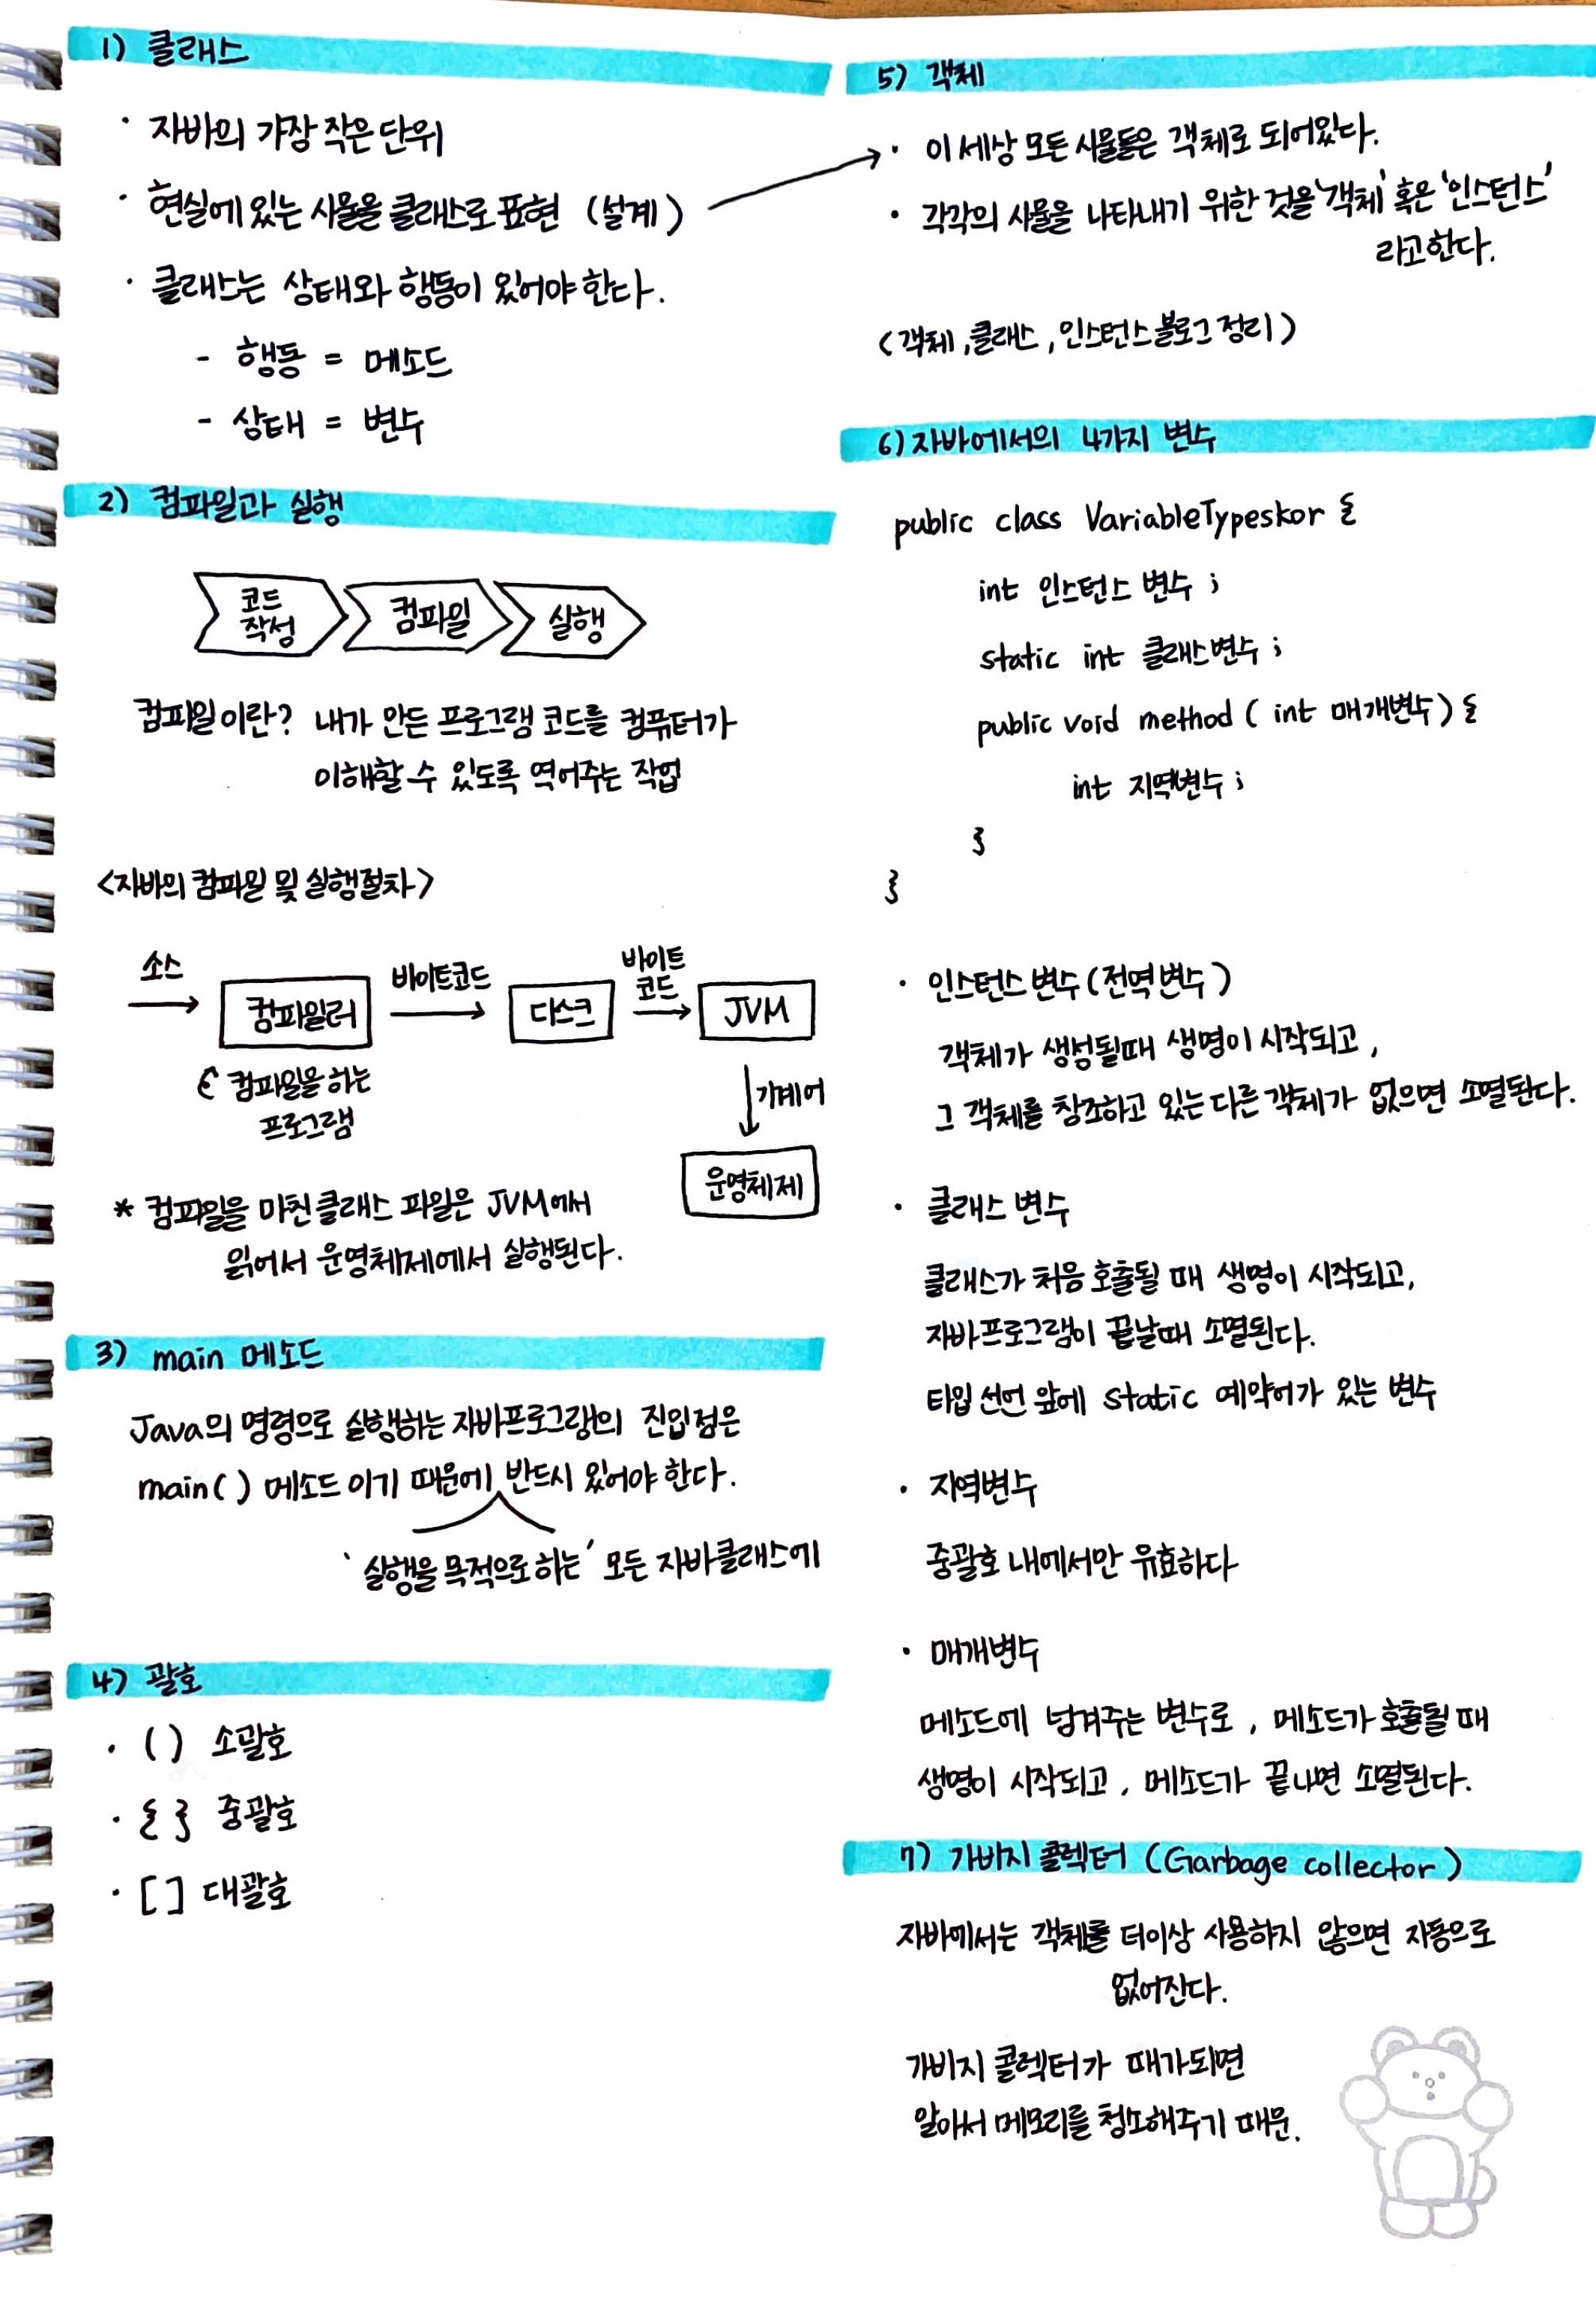 1) 클래스
· 자바의 가장 작은 단위
· 현실에 있는 사물을 클래스로 표현 (설계)
· 클래스는 상태와 행동이 있어야 한다.
- 행동 = 메소드
- 상태 = 변수
2) 컴파일과 실행
코드
작성
컴파일
실행
컴파일이란? 내가 만든 프로그램 코드를 컴퓨터가
이해할 수 있도록 엮어주는 작업
<자바의 컴파일 및 실행절차>
소스
컴파일러
바이트코드
디스크
바이트
코드
JVM
컴파일을 하는
프로그램
기계어
운영체제
* 컴파일을 마친 클래스 파일은 JVM에서
읽어서 운영체제에서 실행된다.
3) main 메소드
Java의 명령으로 실행하는 자바프로그램의 진입점은
main() 메소드 이기 때문에 반드시 있어야 한다.
'실행을 목적으로 하는' 모든 자바클래스에
4) 괄호
· () 소괄호
· {} 중괄호
· [] 대괄호
5) 객체
· 이 세상 모든 사물들은 객체로 되어있다.
· 각각의 사물을 나타내기 위한 것을 '객체' 혹은 '인스턴스'
라고한다.
<객체,클래스,인스턴스 블로그 정리>
6) 자바에서의 4가지 변수
public class VariableTypeskor {
int 인스턴스 변수;
static int 클래스변수;
public void method (int 매개변수) {
int 지역변수;
}
}
· 인스턴스 변수 (전역 변수)
객체가 생성될때 생명이 시작되고,
그 객체를 창조하고 있는 다른 객체가 없으면 소멸된다.
· 클래스 변수
클래스가 처음 호출될 때 생명이 시작되고,
자바프로그램이 끝날때 소멸된다.
타입 선언 앞에 static 예약어가 있는 변수
· 지역변수
중괄호 내에서만 유효하다
· 매개변수
메소드에 넘겨주는 변수로, 메소드가 호출될 때
생명이 시작되고, 메소드가 끝나면 소멸된다.
7) 가비지 콜렉터 (Garbage collector)
자바에서는 객체를 더이상 사용하지 않으면 자동으로
없어진다.
가비지 콜렉터가 때가되면
알아서 메모리를 청소해주기 때문.